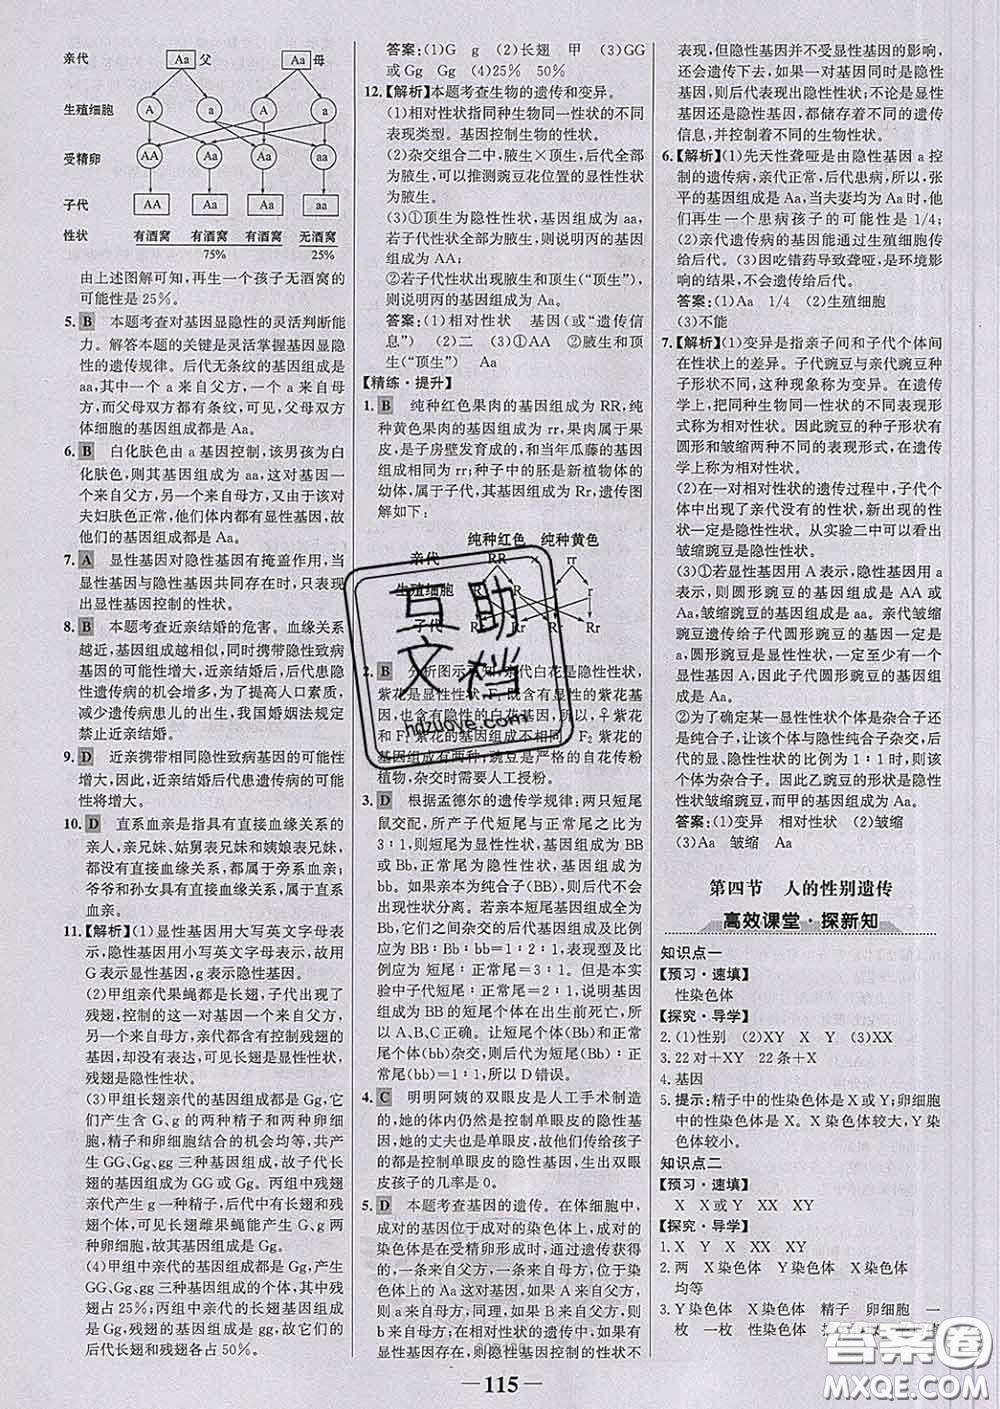 亲代 Aa 父 Aa 母
生殖细胞 A a A a
受精卵 AA Aa Aa aa
子代 AA Aa Aa aa
性状 有酒窝 有酒窝 有酒窝 无酒窝
75% 25%
由上述图解可知，再生一个孩子无酒窝的
可能性是25%。
5. B 本题考查对基因显隐性的灵活判断能
力。解答本题的关键是灵活掌握基因显隐
性的遗传规律。后代无条纹的基因组成是
aa，其中一个 a 来自父方，一个 a 来自母
方，而父母双方都有条纹，可见，父母双方
体细胞的基因组成都是Aa。
6. B 白化肤色由a基因控制，该男孩为白
化肤色，则其基因组成为aa，这对基因一
个来自父方，一个来自母方，又由于该对
夫妇肤色正常，他们体内都有显性基因，故
他们的基因组成都是Aa。
7. A 显性基因对隐性基因有掩盖作用，当
显性基因与隐性基因共同存在时，只表现
出显性基因控制的性状。
8. B 本题考查近亲结婚的危害。血缘关系
越近，基因组成越相似，同时携带隐性致病
基因的可能性增大，近亲结婚后，后代患隐
性遗传病的机会增多，为了提高人口素质，
减少遗传病患儿的出生，我国婚姻法规定
禁止近亲结婚。
9. D 近亲携带相同隐性致病基因的可能性
增大，因此，近亲结婚后代患遗传病的可能
性将增大。
10. D 直系血亲是指具有直接血缘关系的
亲人，亲兄妹、姑舅表兄妹和姨娘表兄妹，
都没有直接血缘关系，都属于旁系血亲；
爷爷和孙女具有直接血缘关系，属于直系
血亲。
11.【解析】(1)显性基因用大写英文字母表
示，隐性基因用小写英文字母表示，故用
G表示显性基因，g表示隐性基因。
(2)甲组亲代果蝇都是长翅，子代出现了
残翅，控制的这一对基因一个来自父方，
一个来自母方，亲代都含有控制残翅的基
因，却没有表达，可见长翅是显性性状，
残翅是隐性性状。
(3)甲组长翅果蝇基因组成都是Gg，它
们产生含 G、g 的两种精子和两种卵细
胞，精子和卵细胞结合的机会均等，共产
生GG、Gg、gg 三种基因组成，故子代长翅
个体基因组成为GG或Gg。丙组中残翅
亲代产生g一种精子，后代中有长翅和残
翅个体，可见长翅雌果蝇能产生G、g两
种卵细胞，故其基因组成为Gg。
(4)甲组中亲代的基因组成都是Gg，产生
GG、Gg、gg三种基因组成的个体，其中残
翅占25%；丙组中亲代的长翅个体基因
组成是Gg，残翅的基因组成是gg，故后代
长翅和残翅各占50%。
答案:(1)G g (2)长翅 甲 (3)GG
或Gg Gg (4)25% 50%
12.【解析】本题考查生物的遗传和变异。
(1)相对性状指同种生物同一性状的不同
表现类型。基因控制生物的性状。
(2)杂交组合二中，腋生×顶生，后代全部
为腋生，可以推测豌豆花位置的显性性状
为腋生。
(3)①顶生为隐性性状，基因组成为aa，
若子代性状全部为腋生，说明丙的基因组
成为AA。
②若子代性状出现腋生和顶生(“顶生”)，
则说明丙的基因组成为Aa。
答案:(1)相对性状 基因(或“遗传信
息”) (2)二 (3)①AA ②腋生和顶生
(“顶生”) Aa
【精练·提升】
1. B 纯种红色果肉的基因组成为RR，纯
种黄色果肉的基因组成为rr，果肉属于果
皮，是子房壁发育成的，和当年瓜藤的基因
组成相同为rr；种子中的胚是新植物体的
幼体，属于子代，其基因组成为Rr，遗传图
解如下：
纯种红色 纯种黄色
亲代 RR × rr
生殖细胞
子代
互助文档
hdzuoye.com
植物，杂交时需要人工授粉。
3. D 根据孟德尔的遗传学规律：两只短尾
鼠交配，所产子代短尾与正常尾之比为
3∶1，则短尾为显性性状，基因组成为BB
或Bb，正常尾为隐性性状，基因组成为bb。
如果亲本一方为纯合子(BB)，则后代不会
出现性状分离。若亲本短尾基因组成都是
Bb，它们之间杂交后代基因组成及比例应
为BB∶Bb∶bb=1∶2∶1，表现型及比例
应为 短尾∶正常尾=3∶1。但是，本实
验中子代短尾∶正常尾=2∶1，说明基因
组成为 BB 的个体在出生前死亡，所
以 A、B、C 正确。让短尾个体(Bb)和正常
尾个体(bb)杂交，则后代为短尾(Bb)∶正
常尾(bb)=1∶1，所以D错误。
4. C 明明阿姨的双眼皮是人工手术制造
的，她的体内仍然是控制单眼皮的隐性基
因，她的丈夫也是单眼皮，所以传给孩子的
都是控制单眼皮的隐性基因，生出双眼
皮孩子的几率是0。
5. D 本题考查基因的遗传。在体细胞中，
成对的基因位于成对的染色体上，成对的
染色体是在受精卵形成时，通过遗传获得
的，一条来自父方，一条来自母方，位于染
色体上的基因也是如此，如果A来自父方，
则a来自母方，同理，如果 B 来自父方，则
b来自母方；在相对性状的遗传中，如果有
显性基因存在，则隐性基因控制的性状不
表现，但隐性基因并不受显性基因的影响，
还会遗传下去。如果一对基因同时是隐性
基因，则后代表现隐性性状；不论是显性基
因还是隐性基因，都储存着大量的遗传
信息，并控制着不同的生物性状。
6.【解析】(1)先天性聋哑是由隐性基因a控
制的遗传病，亲代正常，后代患病，所以，张
平的基因组成是Aa，当夫妻均为Aa时，他
们再生一个患病孩子的可能性是1/4；
(2)亲代遗传病的基因能通过生殖细胞传
给后代。(3)因吃错药导致聋哑，是环境影
响的结果，不会遗传给后代。
答案:(1)Aa 1/4 (2)生殖细胞
(3)不能
7.【解析】(1)变异是指亲子间和子代个体间
在性状上的差异。子代豌豆与亲代豌豆种
子形状不同，这种现象称为变异。在遗传
学上，把同种生物同一性状的不同表现形
式称为相对性状。因此豌豆种子形状有
圆形和皱缩两种不同的表现形式，在遗传
学上称为相对性状。
(2)在一对相对性状的遗传过程中，子代个
体中出现了亲代没有的性状，新出现的性
状一定是隐性性状。从实验二中可以看出
皱缩豌豆是隐性性状。
(3)①若显性基因用A表示，隐性基因用a
表示，则圆形豌豆的基因组成是 AA 或
Aa，皱缩豌豆的基因组成是aa。亲代皱缩
豌豆遗传给子代圆形豌豆的基因一定是
a，因此子代圆形豌豆的基因组成是Aa。
②为了确定某一显性性状个体是杂合子还
是纯合子，让该个体与隐性纯合子杂交，后
代的基因型及表现型的比例为1∶1，所以
因此乙豌豆的形状是隐性
皱缩豌豆，而甲的基因组成为Aa。
答案:(1)变异 相对性状 (2)皱缩
(3)Aa 皱缩 Aa
第四节 人的性别遗传
高效课堂·探新知
知识点一
【预习·速填】
性染色体
【探究·导学】
2.(1)性别 (2)XY X Y (3)XX
3.22对+XY 22条+X
4.基因
5.提示:精子中的性染色体是X或Y；卵细胞
中的性染色体是X。X染色体较大，Y染
色体较小。
知识点二
【预习·速填】
X X或Y XX XY
【探究·导学】
1.X Y XX XY
2.两 X染色体 Y染色体 X染色体
均等
3.Y染色体 X染色体 精子 卵细胞 一
枚 一枚 性染色体
115
答案圈
MXQE.COM